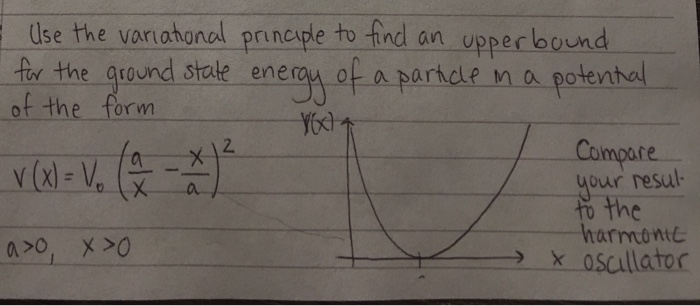 Use the variational principle to find an upper bound
for the ground state energy of a particle in a potential
of the form
V(x)
V(x) = V₀ (a/x - x/a)²
a>0, x>0
x
Compare
your resul
to the
harmonic
oscillator